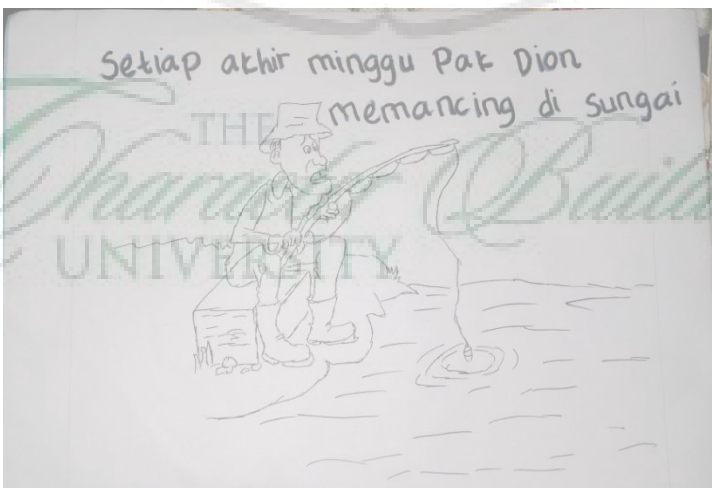 Setiap akhir minggu Pak Dion
memancing di sungai
THE
Character Build
UNIVERSITY